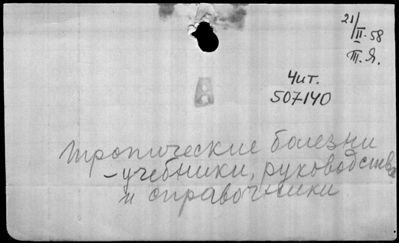 21/II-58
Т.Я.
Чит.
507140
Тропические болезни
-учебники, руководства
и справочники